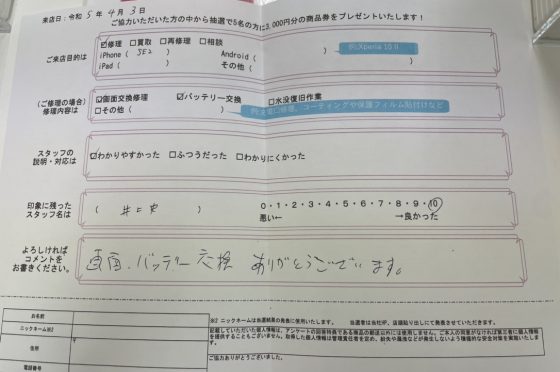 来店日：令和 5 年 4 月 3 日
ご協力いただいた方の中から抽選で5名の方に3,000円分の商品券をプレゼントいたします！
ご来店目的は
☑修理 □買取 □再修理 □相談
iPhone（ SE2 ） Android（ ） 例:Xperia 10 II
iPad（ ） その他（ ）
（ご修理の場合）
修理内容は
☑画面交換修理 ☑バッテリー交換 □水没復旧作業
□その他（ ） 修理、コーティングや保護フィルム貼付けなど
スタッフの
説明・対応は
☑わかりやすかった □ふつうだった □わかりにくかった
印象に残った
スタッフ名は
（ ）
0・1・2・3・4・5・6・7・8・9・10
悪い← →良かった
よろしければ
コメントを
お書きください。
画面、バッテリー交換 ありがとうございます。
お名前
ニックネーム※2
住所
〒
※2 ニックネームは当選結果の発表に使用いたします。 当選者は当社HP、店頭貼り出しにて発表させていただきます。
記載していただいた個人情報は、アンケートの回答特典である商品の郵送以外には使用しません。ご本人の同意がなければ第三者に個人情報
を提供することもございません。取得した個人情報は管理責任者を定め、紛失や漏洩などが発生しないよう積極的な安全対策を実施いたします。
ご協力ありがとうございました。